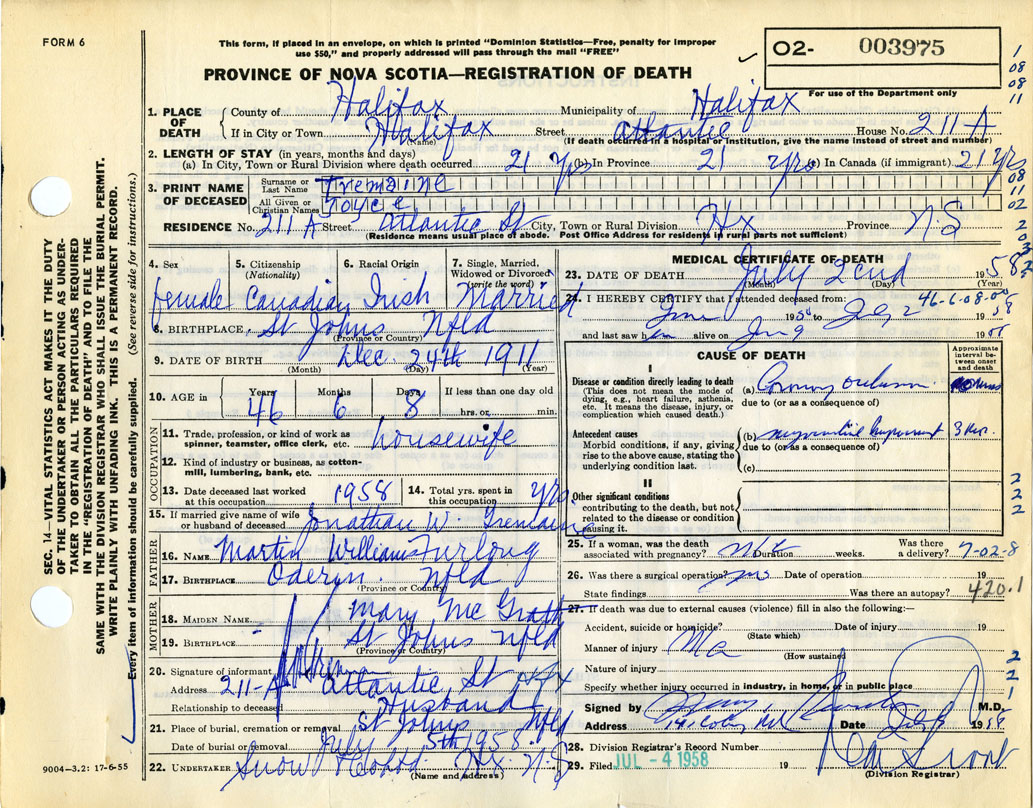 FORM 6
This form, if placed in an envelope, on which is printed "Dominion Statistics—Free, penalty for improper
use $50," and properly addressed will pass through the mail "FREE"
PROVINCE OF NOVA SCOTIA—REGISTRATION OF DEATH
02- 003975
For use of the Department only
1. PLACE OF DEATH
County of Halifax Municipality of Halifax
If in City or Town Halifax Street Atlantic House No. 211 A
(Name) (If death occurred in a hospital or institution, give the name instead of street and number)
2. LENGTH OF STAY (in years, months and days)
(a) In City, Town or Rural Division where death occurred 21 yrs (b) In Province 21 yrs (c) In Canada (if immigrant) 21 yrs
3. PRINT NAME OF DECEASED
Surname or Last Name Tremaine
All Given or Christian Names Joyce
RESIDENCE No. 211 A Street Atlantic St City, Town or Rural Division Hx Province N.S
(Residence means usual place of abode. Post Office Address for residents in rural parts not sufficient)
4. Sex 5. Citizenship (Nationality) 6. Racial Origin 7. Single, Married, Widowed or Divorced (write the word)
female Canadian Irish Married
8. BIRTHPLACE St Johns Nfld
(Province or Country)
9. DATE OF BIRTH Dec 24th 1911
(Month) (Day) (Year)
10. AGE in Years 46 Months 6 Days 8 If less than one day old
hrs. or min.
OCCUPATION
11. Trade, profession, or kind of work as spinner, teamster, office clerk, etc. housewife
12. Kind of industry or business, as cotton-mill, lumbering, bank, etc.
13. Date deceased last worked at this occupation 1958 14. Total yrs. spent in this occupation yrs
15. If married give name of wife or husband of deceased Jonathan W. Tremaine
FATHER
16. NAME Martin William Furlong
17. BIRTHPLACE Oderin Nfld
(Province or Country)
MOTHER
18. MAIDEN NAME Mary Mc Grath
19. BIRTHPLACE St Johns Nfld
(Province or Country)
20. Signature of informant
Address 211-A Atlantic St Hfx
Relationship to deceased Husband
21. Place of burial, cremation or removal St Johns Nfld
Date of burial or removal July 5th 1958
22. UNDERTAKER Snow & Co Ltd Hx N.S
(Name and address)
MEDICAL CERTIFICATE OF DEATH
23. DATE OF DEATH July 2nd 1958
(Month) (Day) (Year)
46-6-08-00
24. I HEREBY CERTIFY that I attended deceased from:
to July 2 1958
and last saw h alive on 19
CAUSE OF DEATH
Approximate interval between onset and death
I
Disease or condition directly leading to death
(This does not mean the mode of dying, e.g., heart failure, asthenia, etc. It means the disease, injury, or complication which caused death.)
(a) Coronary occlusion
due to (or as a consequence of)
Antecedent causes
Morbid conditions, if any, giving rise to the above cause, stating the underlying condition last.
(b)
due to (or as a consequence of)
(c)
II
Other significant conditions
contributing to the death, but not related to the disease or condition causing it.
25. If a woman, was the death associated with pregnancy? Duration weeks. Was there a delivery? 7-02-8
26. Was there a surgical operation? no Date of operation 19
State findings Was there an autopsy? 420.1
27. If death was due to external causes (violence) fill in also the following:—
Accident, suicide or homicide? Date of injury 19
(State which)
Manner of injury
(How sustained)
Nature of injury
Specify whether injury occurred in industry, in home, or in public place
Signed by M.D.
Address Date 1958
28. Division Registrar's Record Number
29. Filed JUL -4 1958 19
(Division Registrar)
SEC. 14—VITAL STATISTICS ACT MAKES IT THE DUTY
OF THE UNDERTAKER OR PERSON ACTING AS UNDER-
TAKER TO OBTAIN ALL THE PARTICULARS REQUIRED
IN THE "REGISTRATION OF DEATH" AND TO FILE THE
SAME WITH THE DIVISION REGISTRAR WHO SHALL ISSUE THE BURIAL PERMIT.
WRITE PLAINLY WITH UNFADING INK. THIS IS A PERMANENT RECORD.
Every item of information should be carefully supplied. (See reverse side for instructions.)
9004—3.2: 17-6-55